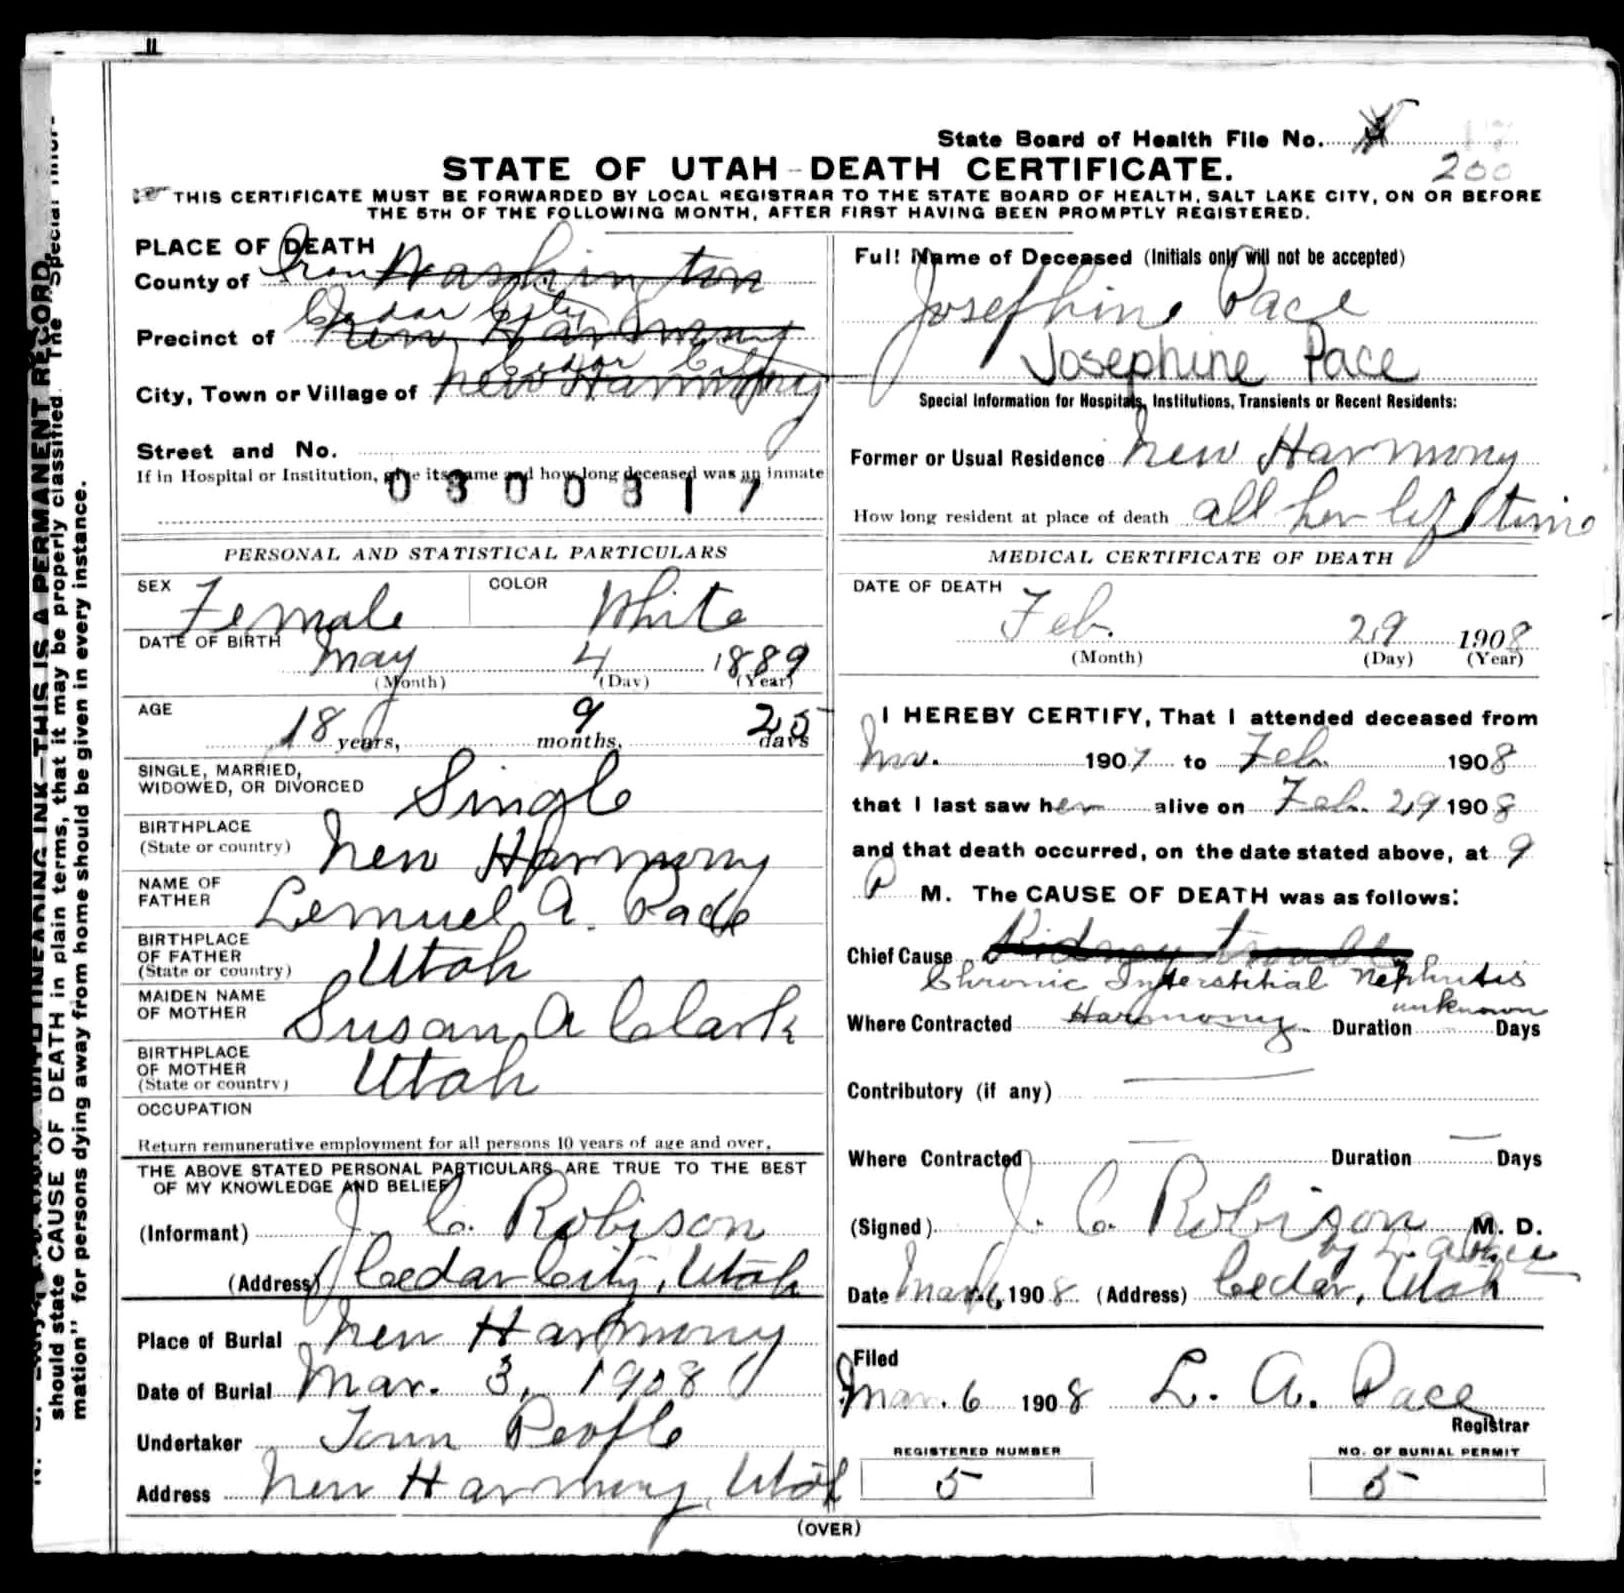 State Board of Health File No.
200
STATE OF UTAH - DEATH CERTIFICATE.
THIS CERTIFICATE MUST BE FORWARDED BY LOCAL REGISTRAR TO THE STATE BOARD OF HEALTH, SALT LAKE CITY, ON OR BEFORE
THE 5TH OF THE FOLLOWING MONTH, AFTER FIRST HAVING BEEN PROMPTLY REGISTERED.
PLACE OF DEATH
County of Iron Washington
Precinct of Cedar City New Harmony
City, Town or Village of Cedar City New Harmony
Street and No.
If in Hospital or Institution, give its name and how long deceased was an inmate
0300317
PERSONAL AND STATISTICAL PARTICULARS
SEX Female COLOR White
DATE OF BIRTH May 4 1889
(Month) (Day) (Year)
AGE 18 years, 9 months, 25 days
SINGLE, MARRIED,
WIDOWED, OR DIVORCED Single
BIRTHPLACE
(State or country) New Harmony
NAME OF
FATHER Lemuel A. Pace
BIRTHPLACE
OF FATHER
(State or country) Utah
MAIDEN NAME
OF MOTHER Susan A Clark
BIRTHPLACE
OF MOTHER
(State or country) Utah
OCCUPATION
Return remunerative employment for all persons 10 years of age and over.
THE ABOVE STATED PERSONAL PARTICULARS ARE TRUE TO THE BEST
OF MY KNOWLEDGE AND BELIEF
(Informant) J. C. Robison
(Address) Cedar City, Utah
Place of Burial New Harmony
Date of Burial Mar. 3, 1908
Undertaker Town People
Address New Harmony, Utah
Full Name of Deceased (Initials only will not be accepted)
Josephine Pace
Josephine Pace
Special Information for Hospitals, Institutions, Transients or Recent Residents:
Former or Usual Residence New Harmony
How long resident at place of death all her life time
MEDICAL CERTIFICATE OF DEATH
DATE OF DEATH
Feb. 29 1908
(Month) (Day) (Year)
I HEREBY CERTIFY, That I attended deceased from
1907 to Feb. 1908
that I last saw her alive on Feb. 29 1908
and that death occurred, on the date stated above, at 9
P M. The CAUSE OF DEATH was as follows:
Chief Cause Kidney trouble
Chronic Interstitial Nephritis
Where Contracted Harmony Duration unknown Days
Contributory (if any)
Where Contracted Duration Days
(Signed) J. C. Robison M. D.
by L. A. Pace
Date Mar. 6, 1908 (Address) Cedar, Utah
Filed
Mar. 6 1908 L. A. Pace
Registrar
REGISTERED NUMBER
5
NO. OF BURIAL PERMIT
5
(OVER)
THIS IS A PERMANENT RECORD
should state CAUSE OF DEATH in plain terms, that it may be properly classified. The "Special Infor-
mation" for persons dying away from home should be given in every instance.